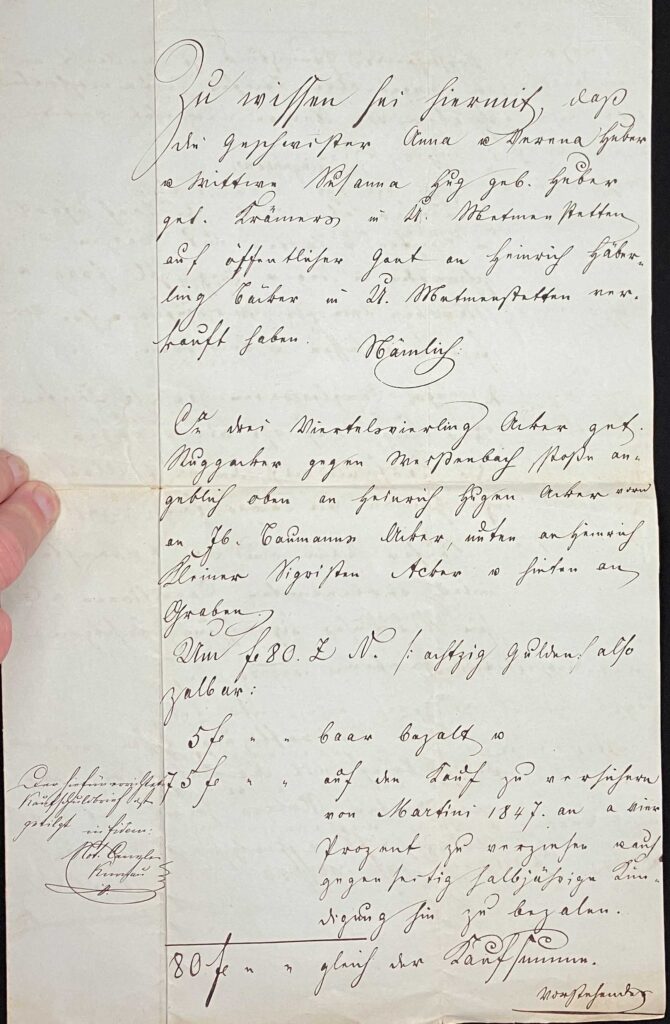 Zu wissen sei hiermit, daß
die Geschwister Anna u Verena Huber
u Wittwe Susanna Hug geb. Huber
get. Krämers in U. Metmenstetten
auf öffentlicher Gant an Heinrich Häber-
ling Bäcker in U. Metmenstetten ver-
kauft haben. Nämlich:
Ca drei Viertelsvierling Acker get.
gegen Weißenbach stoße an-
geblich oben an Heinrich Hugen Acker vorn
an Jb. Baumanns Acker, unten an Heinrich
Kleiner Sigristen Acker u hinten an
Graben.
Um fe 80. Z. W. /: achtzig Gulden :/ also
zalbar:
5 fe " " baar bezalt u
75 fe " " auf den Kauf zu versichern
von Martini 1847. an a vier
Prozent zu verzinsen u auf
gegenseitig halbjährige Kün-
digung hin zu bezalen.
80 fe " " gleich der Kaufsumme.
Vorstehendes
Der hiefür errichtete
Kaufschuldbrief ist
getilgt
Not. Canzlei
Knonau